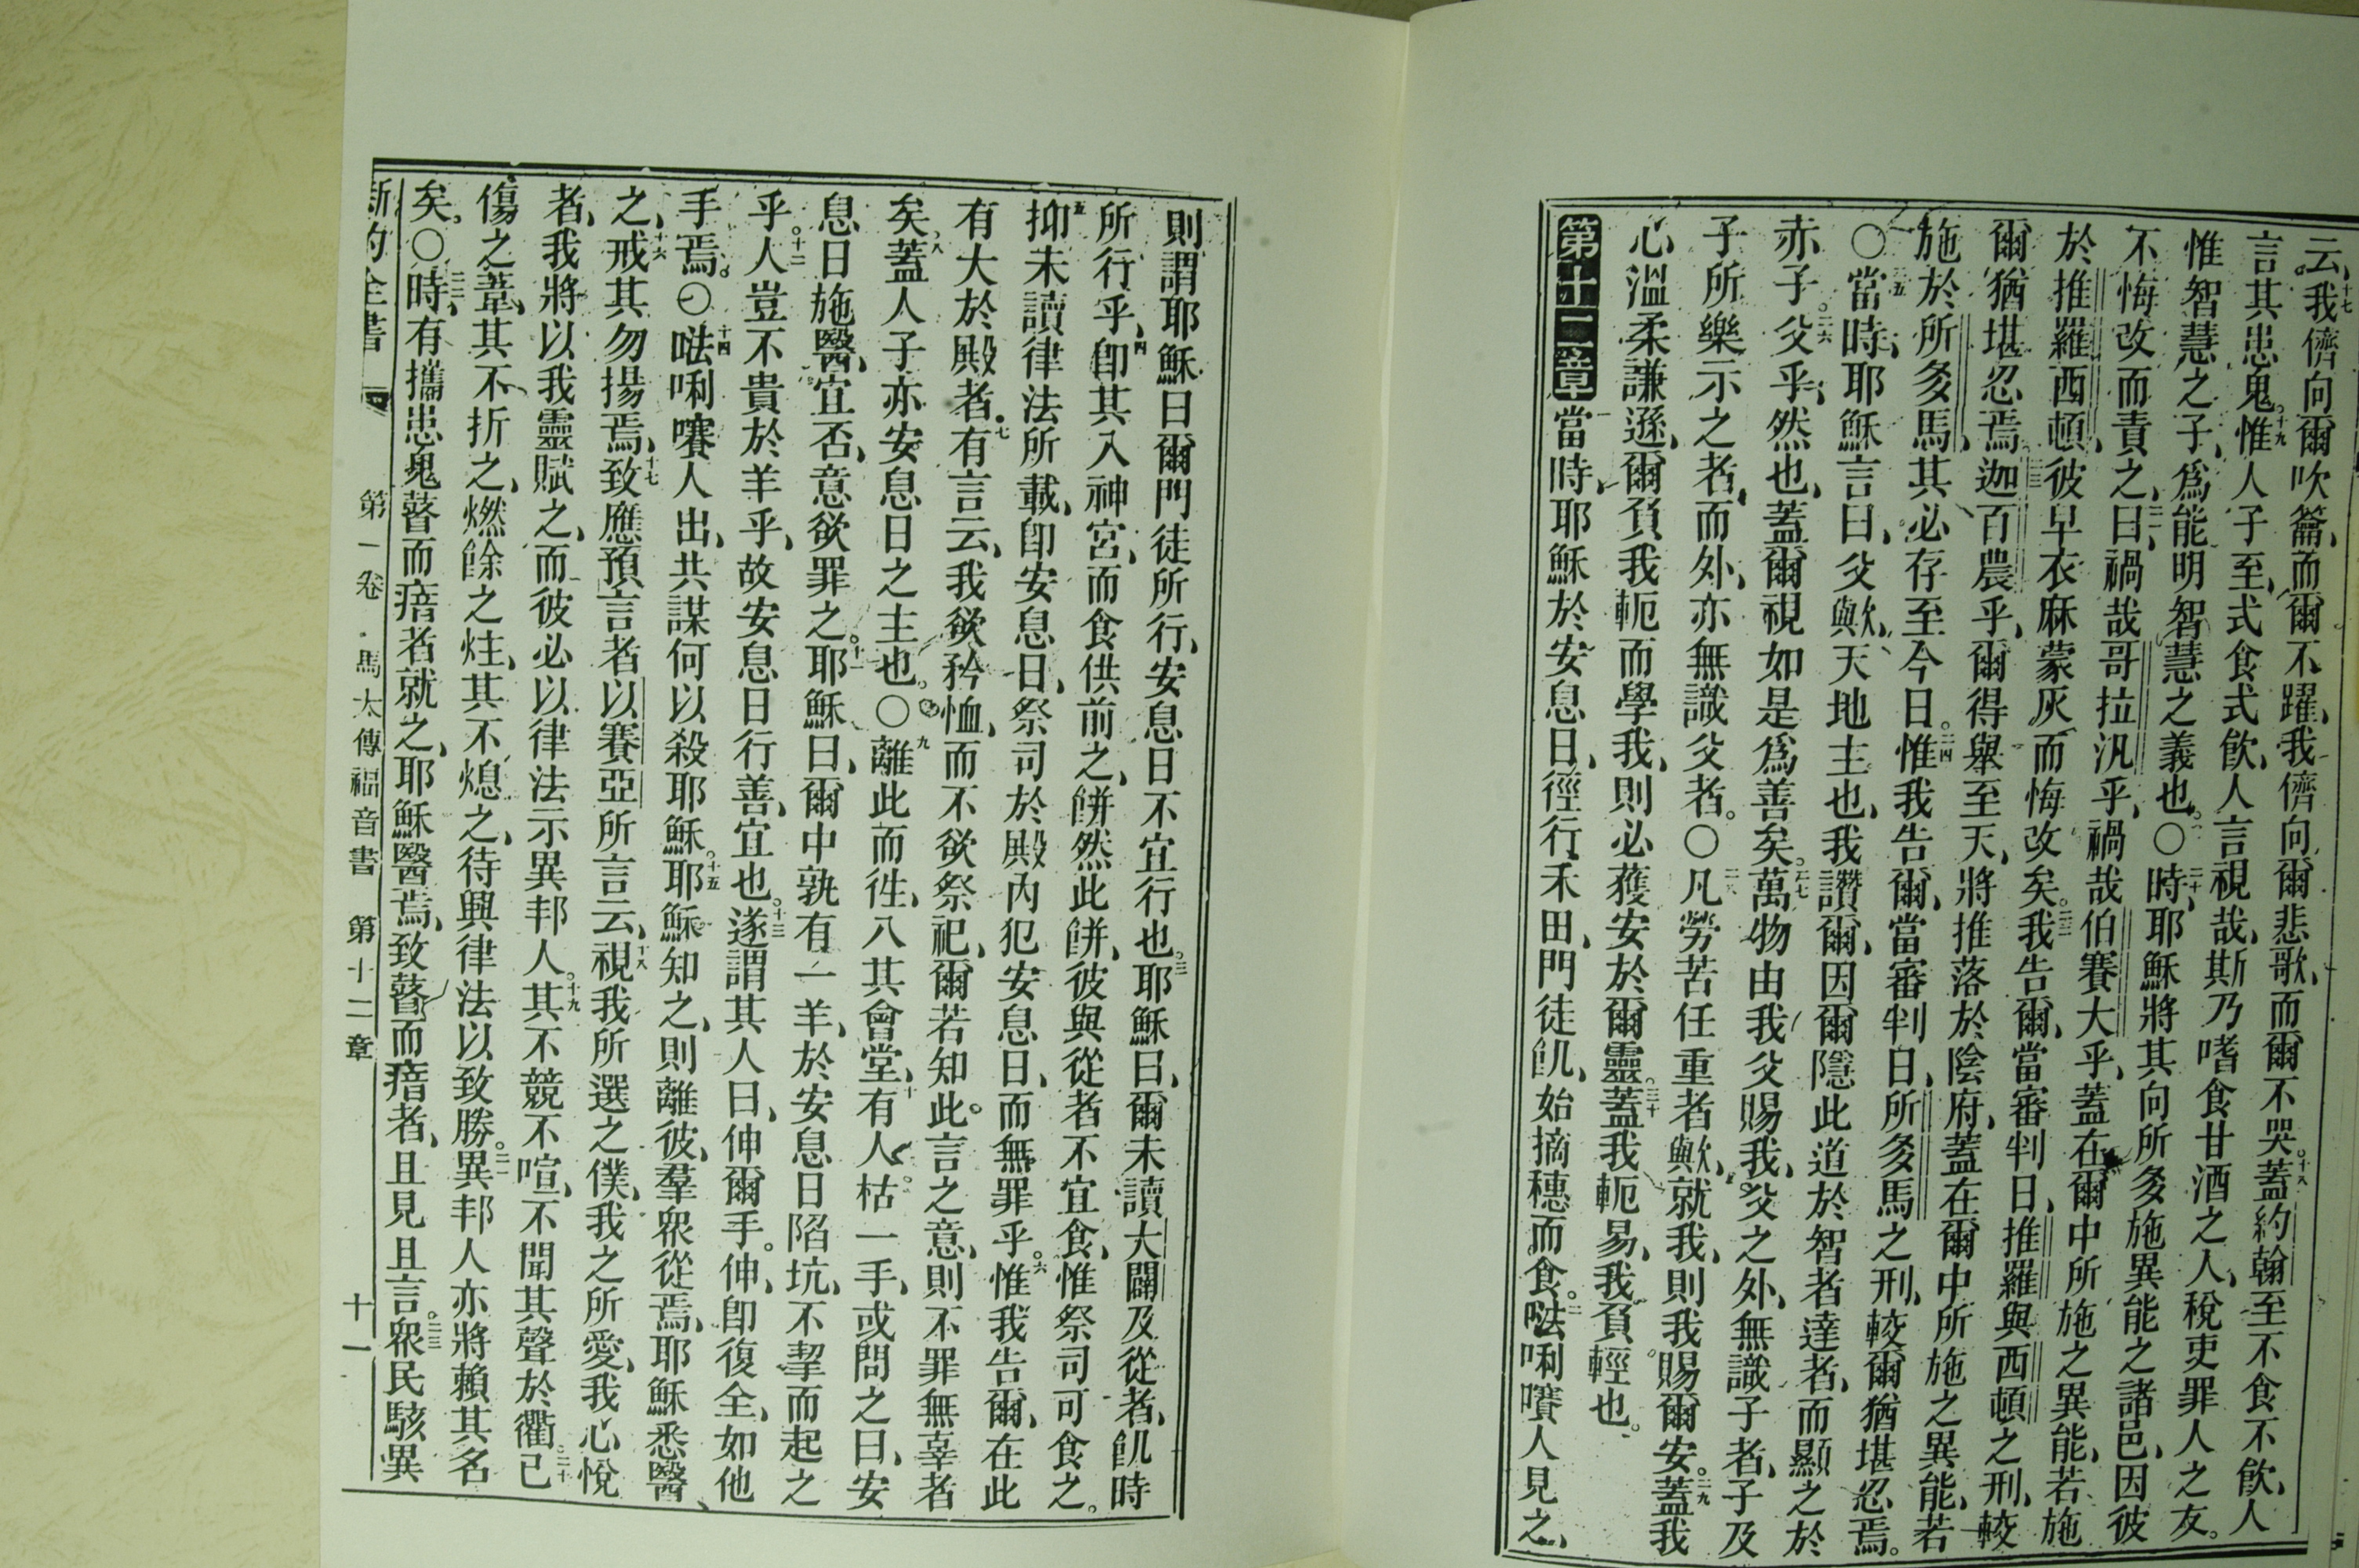 云、我儕向爾吹籥、而爾不躍、我儕向爾悲歌、而爾不哭。十八蓋約翰至不食不飲、人
言其患鬼。十九惟人子至、式食式飲、人言視哉、斯乃嗜食甘酒之人、稅吏罪人之友。
惟智慧之子、爲能明智慧之義也。〇二十時、耶穌將其向所多施異能之諸邑、因彼
不悔改而責之、曰、禍哉哥拉汛乎、禍哉伯賽大乎、蓋在爾中所施之異能、若施
於推羅西頓、彼早衣麻蒙灰而悔改矣。我告爾、當審判日、推羅與西頓之刑、較
爾猶堪忍焉。迦百農乎、爾得舉至天、將推落於陰府、蓋在爾中所施之異能、若
施於所多馬、其必存至今日。二四惟我告爾、當審判日、所多馬之刑、較爾猶堪忍焉。
〇當時、耶穌言曰、父歟、天地主也、我讚爾、因爾隱此道於智者達者、而顯之於
赤子。二六父乎、然也、蓋爾視如是爲善矣。二七萬物由我父賜我、父之外、無識子者、子及
子所樂示之者、而外、亦無識父者。〇凡勞苦任重者歟、就我、則我賜爾安。二九蓋我
心溫柔謙遜、爾負我軛而學我、則必獲安於爾靈。三十蓋我軛易、我負輕也。
第十二章 當時、耶穌於安息日、徑行禾田、門徒飢、始摘穗而食。二𠵽唎㘔人見之、
則謂耶穌曰爾門徒所行、安息日不宜行也。三耶穌曰、爾未讀大闢及從者、飢時
所行乎、四卽其入神宮、而食供前之餅、然此餅、彼與從者不宜食、惟祭司可食之。
五抑未讀律法所載、卽安息日、祭司於殿內犯安息日、而無罪乎。六惟我告爾、在此
有大於殿者。七有言云、我欲矜恤、而不欲祭祀、爾若知此言之意、則不罪無辜者
矣。八蓋人子亦安息日之主也。〇九離此而徃、入其會堂、十有人枯一手、或問之曰、安
息日施醫、宜否、意欲罪之。十一耶穌曰、爾中孰有一羊、於安息日陷坑、不挈而起之
乎。十二人豈不貴於羊乎、故安息日行善、宜也。十三遂謂其人曰、伸爾手。伸、卽復全、如他
手焉。〇十四𠵽唎㘔人出、共謀何以殺耶穌。十五耶穌知之、則離彼、羣衆從焉、耶穌悉醫
之、十六戒其勿揚焉、十七致應預言者以賽亞所言云、十八視我所選之僕、我之所愛、我心悅
者、我將以我靈賦之、而彼必以律法示異邦人。十九其不競不喧、不聞其聲於衢。二十已
傷之葦、其不折之、燃餘之炷、其不熄之、待興律法以致勝。二一異邦人亦將賴其名
矣。〇時、有攜患鬼瞽而瘖者就之、耶穌醫焉、致瞽而瘖者、且見且言。二三衆民駭異
新約全書 第一卷 馬太傳福音書 第十二章 十一